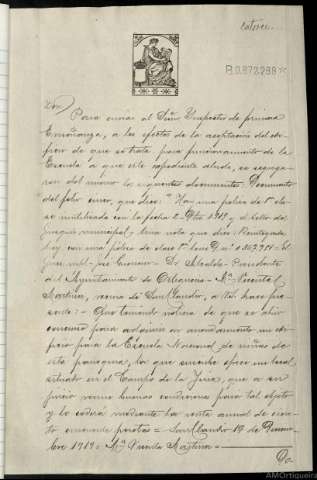 catorce
B.0.872.288*
Para enviar al Señor Inspector de primera
Enseñanza, a los efectos de la aceptación del edi-
ficio de que se trata para funcionamiento de la
Escuela a que este expediente alude, se
del mismo los siguientes documentos. Documento
del folio cinco, que dice: "Hay una póliza de 1ª cla-
se inutilizada con la fecha 2 y el sello del
Juzgado municipal, y una nota que dice: Reintegrado
hoy con una póliza de clase 1ª
José - Sr. Alcalde-Presidente
del Ayuntamiento de Ortigueira - Mª Vicenta
Martínez, vecina de San Claudio, a Vd. hace pre-
sente: - Que teniendo noticia de que se abrió
concurso para adquirir en arrendamiento un edi-
ficio para la Escuela Nacional de niños de
esta parroquia, la que suscribe ofrece un local
situado en el Campo de la Feria, que a su
juicio reune buenas condiciones para tal objeto
y lo cederá mediante la renta anual de cien-
to cincuenta pesetas = San Claudio 19 de Diciem-
bre 1919 = Mª Vicenta Martínez =
AMOrtigueira